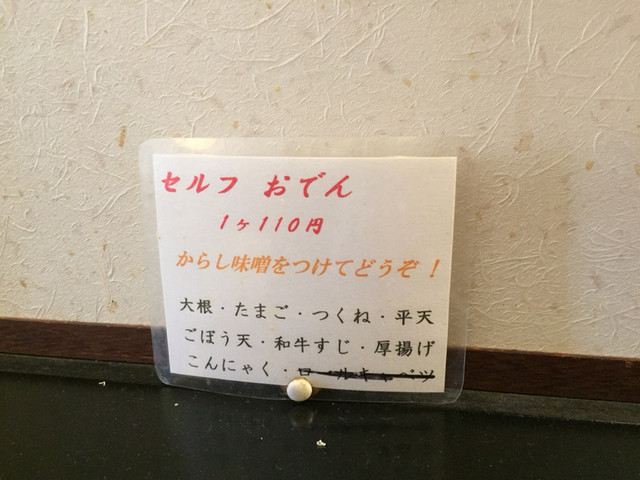 セルフ おでん
1ヶ110円
からし味噌をつけてどうぞ！
大根・たまご・つくね・平天
ごぼう天・和牛すじ・厚揚げ
こんにゃく・ロールキャベツ